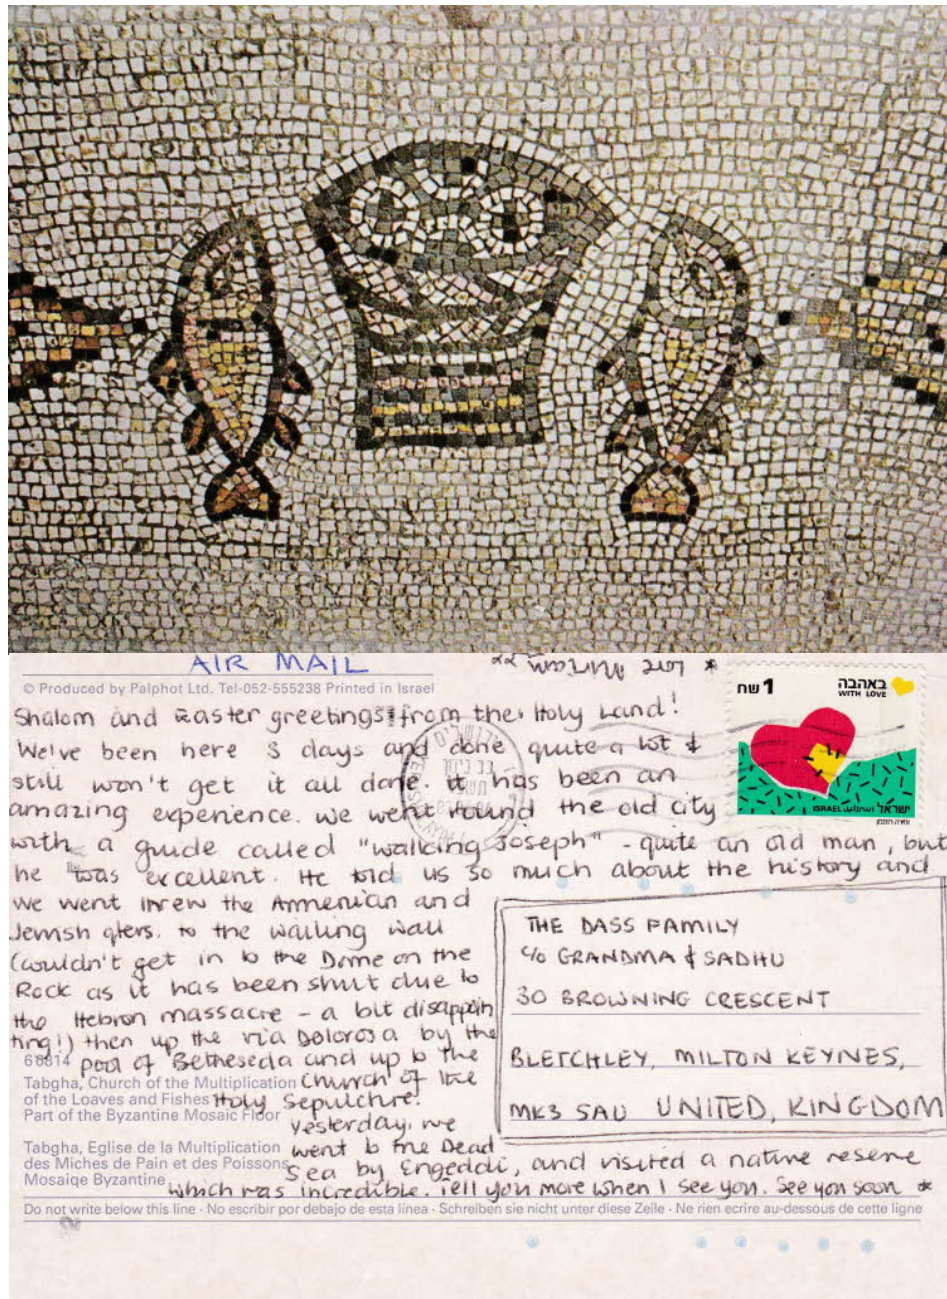 AIR MAIL
© Produced by Palphot Ltd. Tel-052-555238 Printed in Israel
Shalom and Easter greetings from the Holy Land!
We've been here 3 days and done quite a lot &
still won't get it all done. it has been an
amazing experience. we went round the old city
with a guide called "walking Joseph" - quite an old man, but
he was excellent. He told us so much about the history and
we went threw the Armenian and
Jewish qters. to the wailing wall
(couldn't get in to the Dome on the
Rock as it has been shut due to
the Hebron massacre - a bit disappoin
ting!) then up the via Dolorosa by the
pool of Betheseda and up to the
Church of the
Holy Sepulchre.
Yesterday, we
went to the Dead
Sea by Engeddi, and visited a nature reserve
which was incredible. Tell you more when I see you. See you soon *
* love Miriam xx
1 שח
באהבה
WITH LOVE
ISRAEL اسرائيل ישראל
ירושלים
JERUSALEM
THE DASS FAMILY
c/o GRANDMA & SADHU
30 BROWNING CRESCENT
BLETCHLEY, MILTON KEYNES,
MK3 5AU UNITED, KINGDOM
68814
Tabgha, Church of the Multiplication
of the Loaves and Fishes
Part of the Byzantine Mosaic Floor
Tabgha, Eglise de la Multiplication
des Miches de Pain et des Poissons
Mosaiqe Byzantine
Do not write below this line · No escribir por debajo de esta línea · Schreiben sie nicht unter diese Zeile · Ne rien ecrire au-dessous de cette ligne